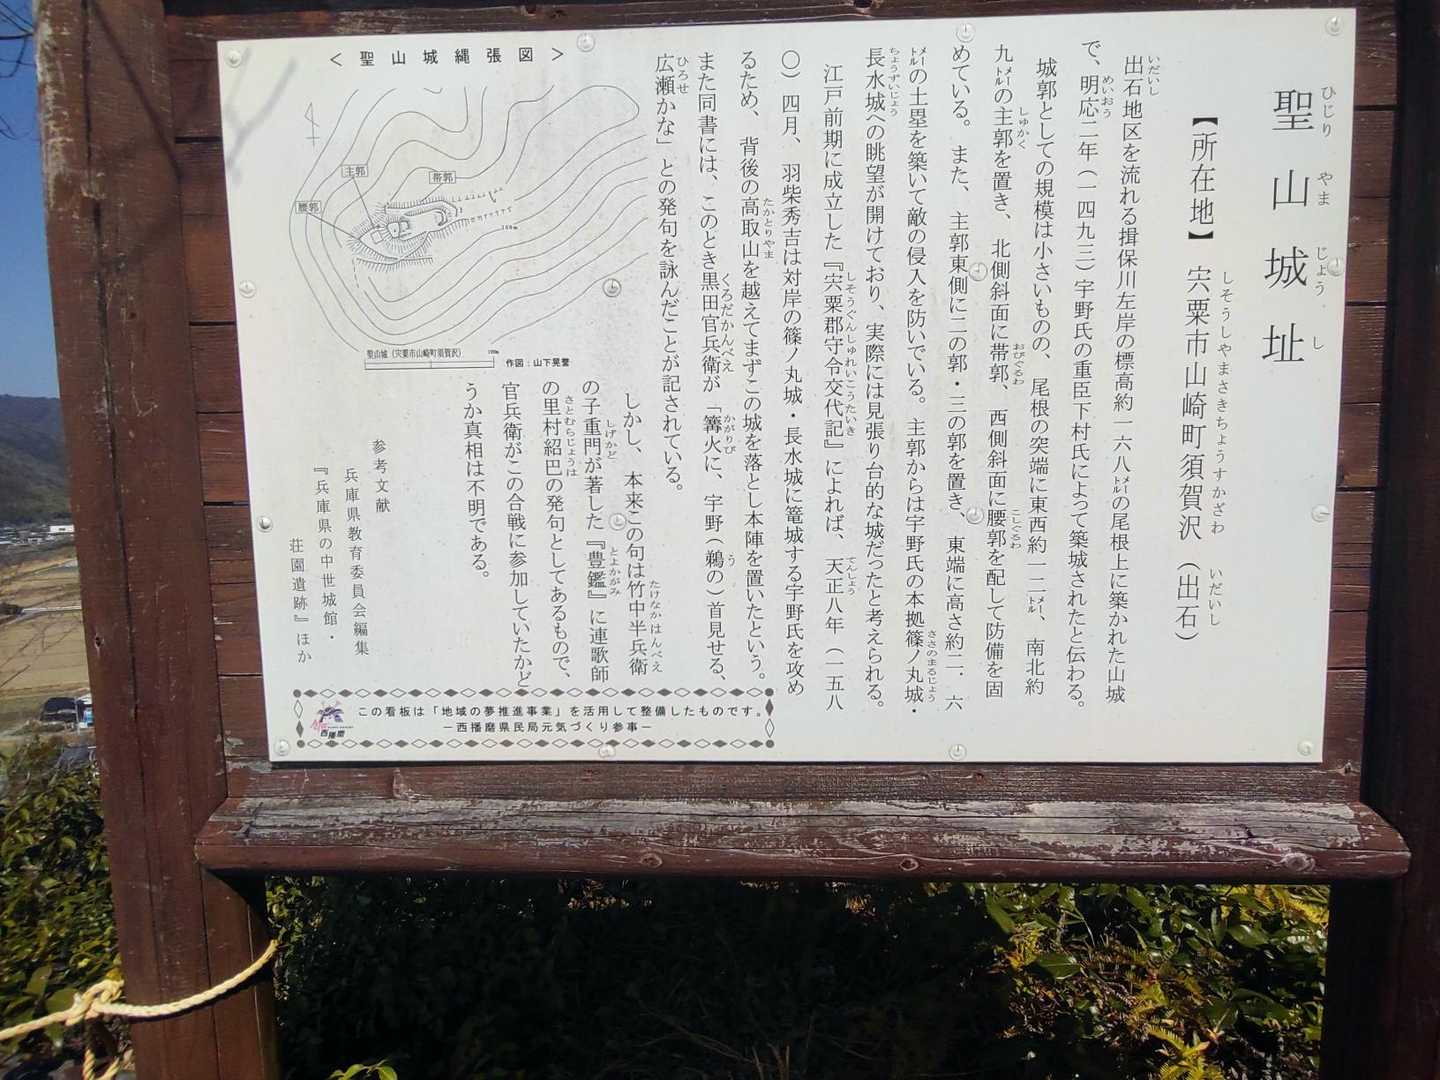 聖山城址
ひじり やま じょう し
【所在地】 宍粟市山崎町須賀沢（出石）
しそうしやまさきちょうすかざわ いだいし
出石地区を流れる揖保川左岸の標高約一六八㍍の尾根上に築かれた山城
いだいし
で、明応二年（一四九三）宇野氏の重臣下村氏によって築城されたと伝わる。
めいおう
城郭としての規模は小さいものの、尾根の突端に東西約一二㍍、南北約
九㍍の主郭を置き、北側斜面に帯郭、西側斜面に腰郭を配して防備を固
しゅかく おびぐるわ こしぐるわ
めている。また、主郭東側に二の郭・三の郭を置き、東端に高さ約二．六
㍍の土塁を築いて敵の侵入を防いでいる。主郭からは宇野氏の本拠篠ノ丸城・
ささのまるじょう
長水城への眺望が開けており、実際には見張り台的な城だったと考えられる。
ちょうずいじょう
江戸前期に成立した『宍粟郡守令交代記』によれば、天正八年（一五八
しそうぐんしゅれいこうたいき てんしょう
〇）四月、羽柴秀吉は対岸の篠ノ丸城・長水城に篭城する宇野氏を攻め
るため、背後の高取山を越えてまずこの城を落とし本陣を置いたという。
たかとりやま
また同書には、このとき黒田官兵衛が「篝火に、宇野（鵜の）首見せる、
くろだかんべえ かがりび う
広瀬かな」との発句を詠んだことが記されている。
ひろせ
しかし、本来この句は竹中半兵衛
たけなかはんべえ
の子重門が著した『豊鑑』に連歌師
しげかど とよかがみ
の里村紹巴の発句としてあるもので、
さとむらじょうは
官兵衛がこの合戦に参加していたかど
うか真相は不明である。
参考文献
兵庫県教育委員会編集
『兵庫県の中世城館・
荘園遺跡』ほか
＜聖山城縄張図＞
主郭
帯郭
腰郭
聖山城（宍粟市山崎町須賀沢）
作図：山下晃誉
この看板は「地域の夢推進事業」を活用して整備したものです。
－西播磨県民局元気づくり参事－
西播磨